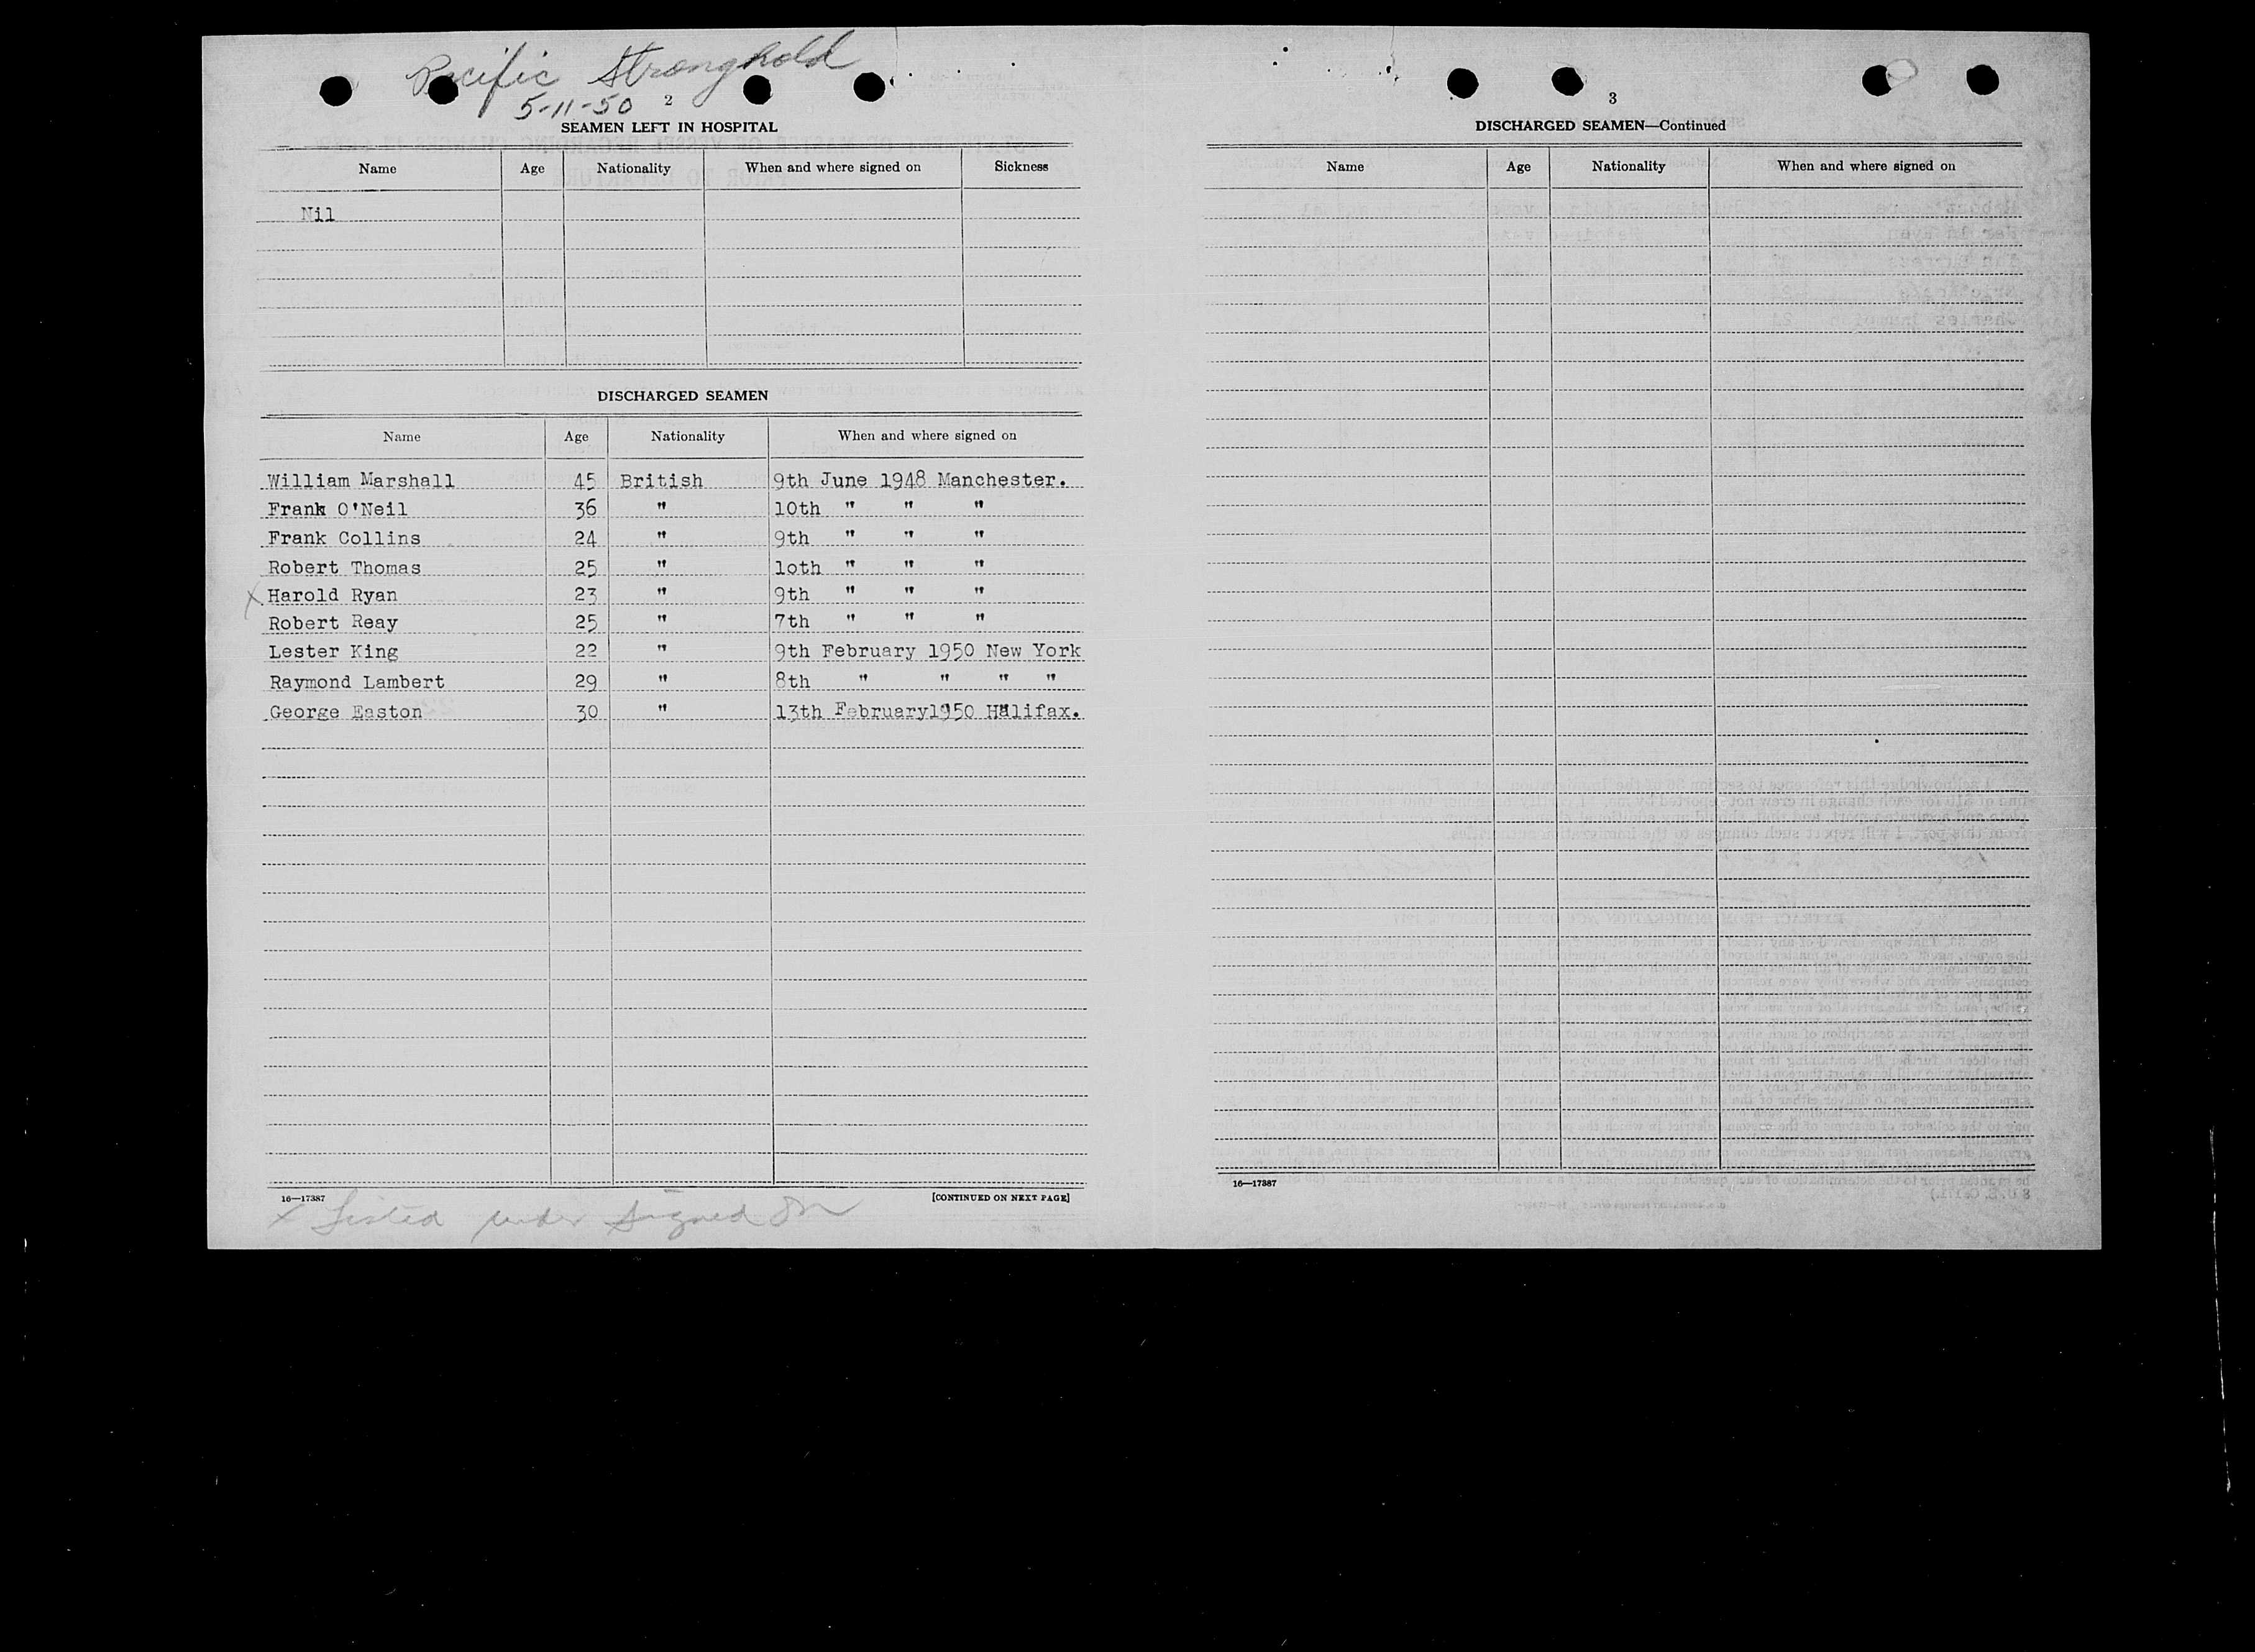 Pacific Stronghold
5-11-50 2
SEAMEN LEFT IN HOSPITAL
Name Age Nationality When and where signed on Sickness
Nil
DISCHARGED SEAMEN
Name Age Nationality When and where signed on
William Marshall 45 British 9th June 1948 Manchester.
Frank O'Neil 36 " 10th " " "
Frank Collins 24 " 9th " " "
Robert Thomas 25 " 1oth " " "
X Harold Ryan 23 " 9th " " "
Robert Reay 25 " 7th " " "
Lester King 22 " 9th February 1950 New York
Raymond Lambert 29 " 8th " " " "
George Easton 30 " 13th February1950 Halifax.
16—17387 [CONTINUED ON NEXT PAGE]
X Listed under Signed On
3
DISCHARGED SEAMEN—Continued
Name Age Nationality When and where signed on
16—17387